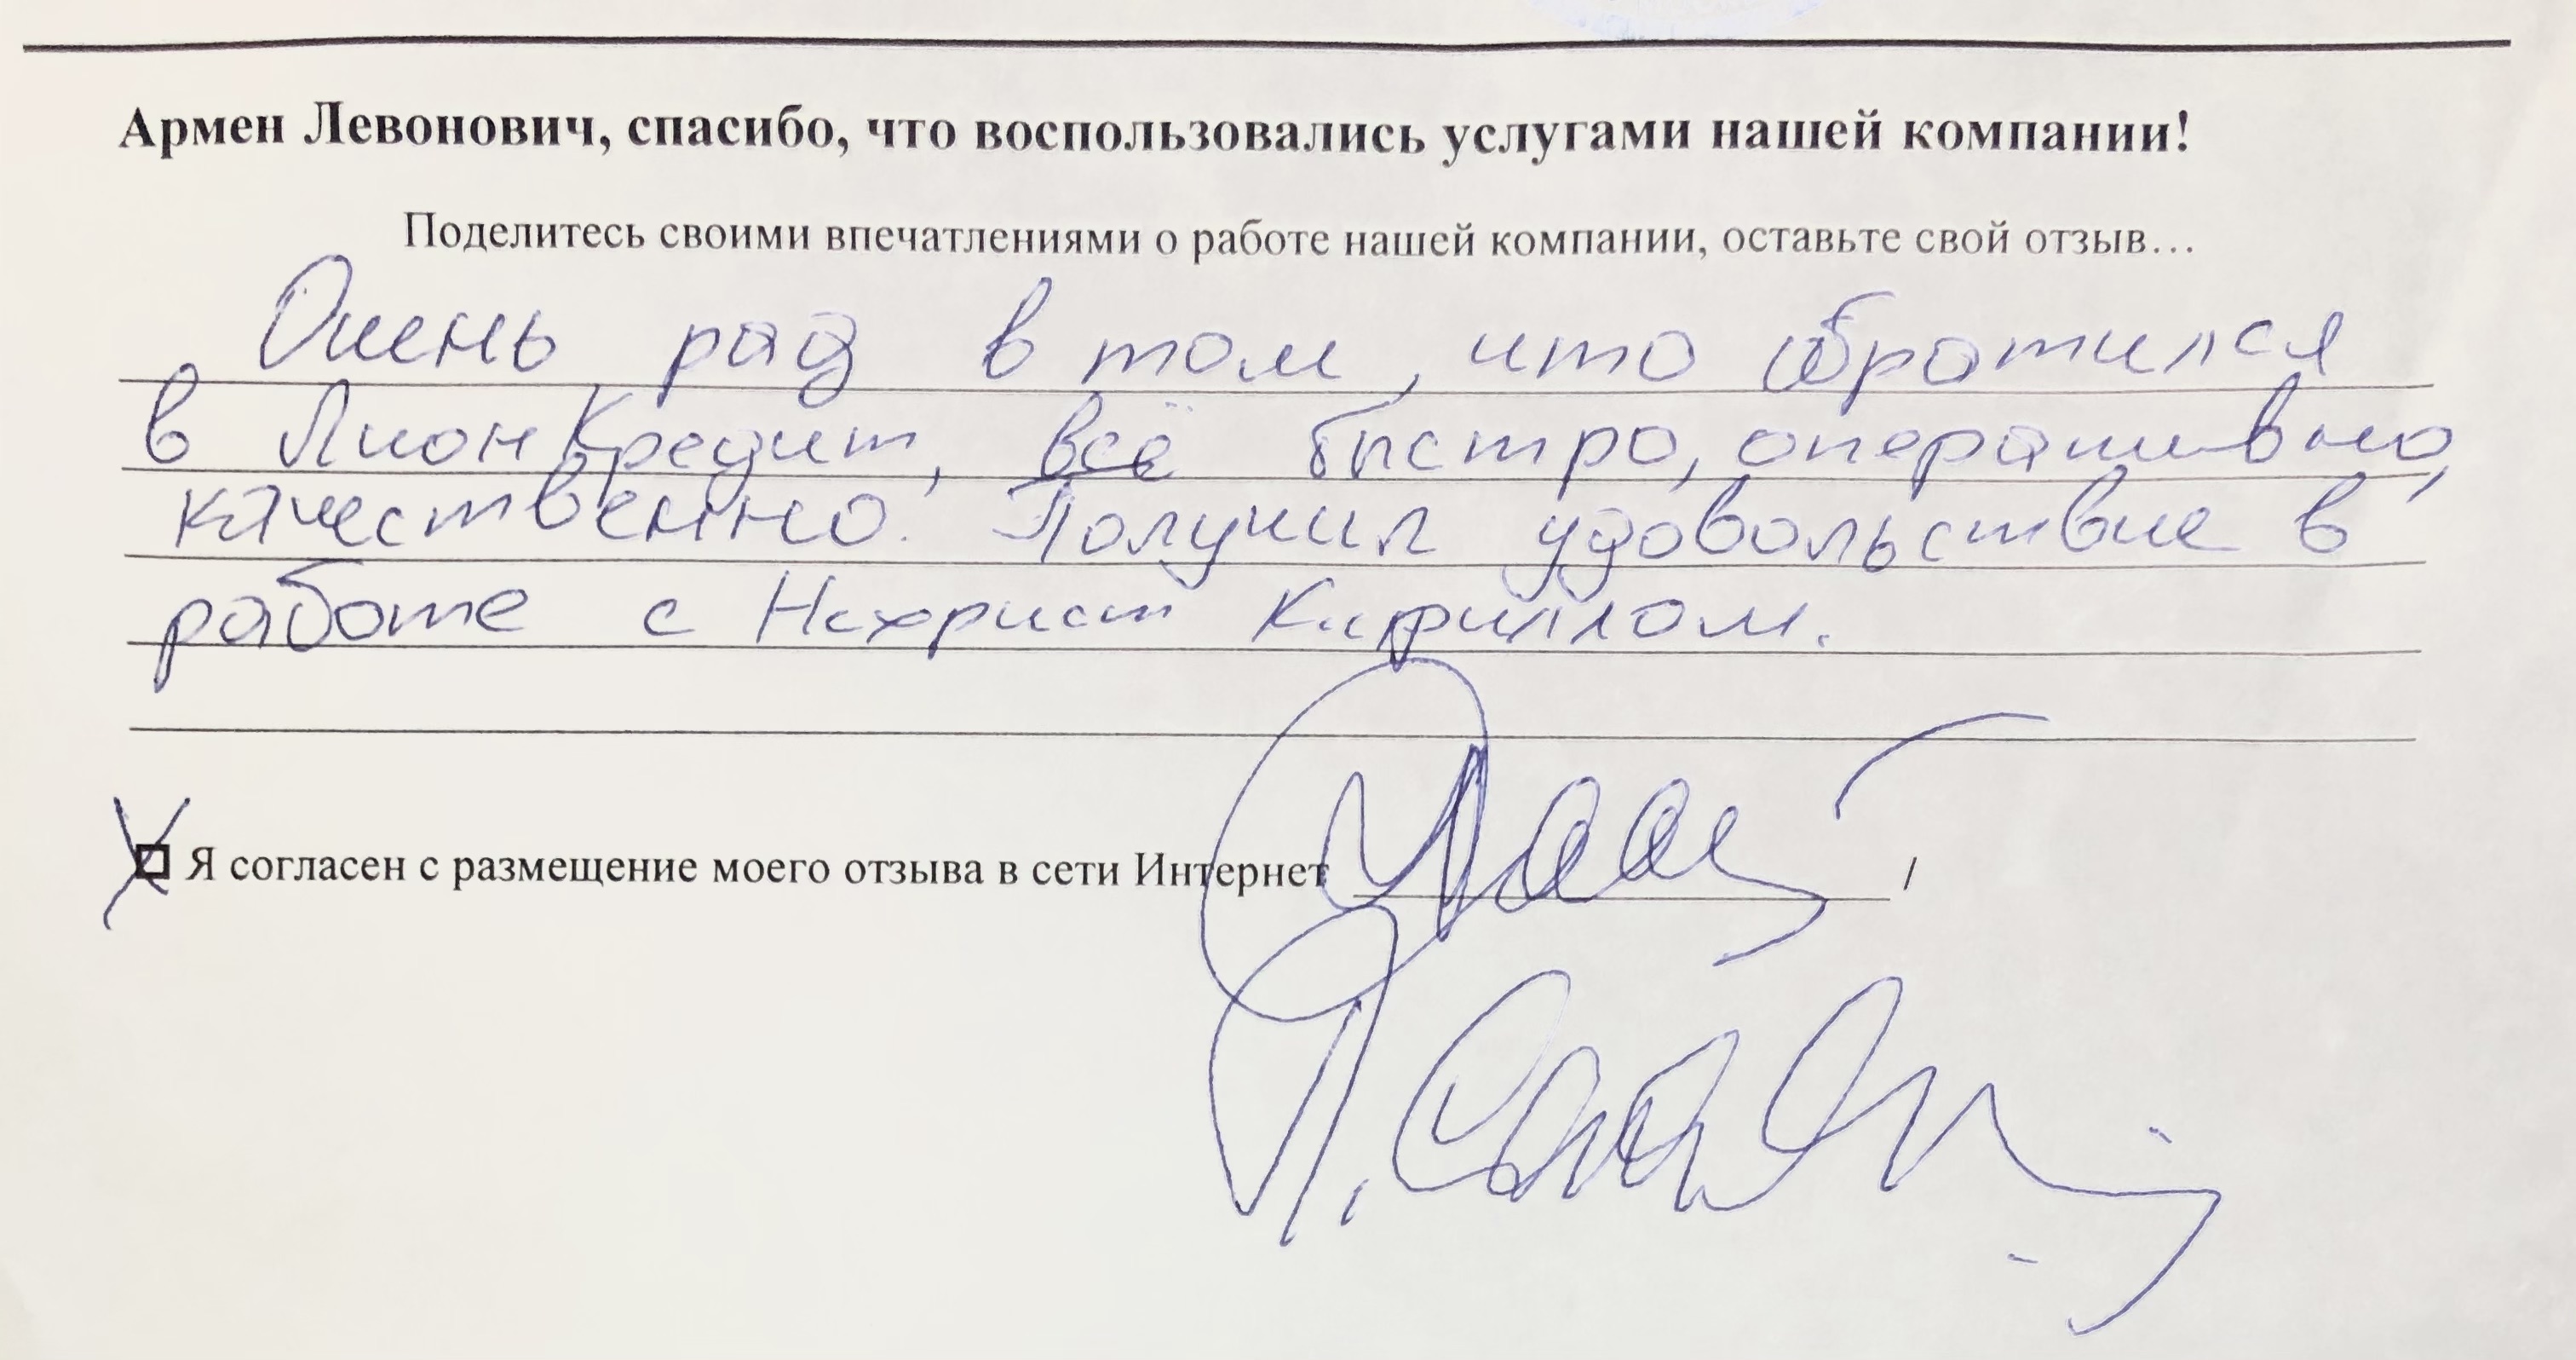 Армен Левонович, спасибо, что воспользовались услугами нашей компании!
Поделитесь своими впечатлениями о работе нашей компании, оставьте свой отзыв...
Очень рад в том, что обратился
в Лион Кредит, всё быстро, оперативно,
качественно. Получил удовольствие в
работе с Нехрист Кириллом.
Я согласен с размещение моего отзыва в сети Интернет /